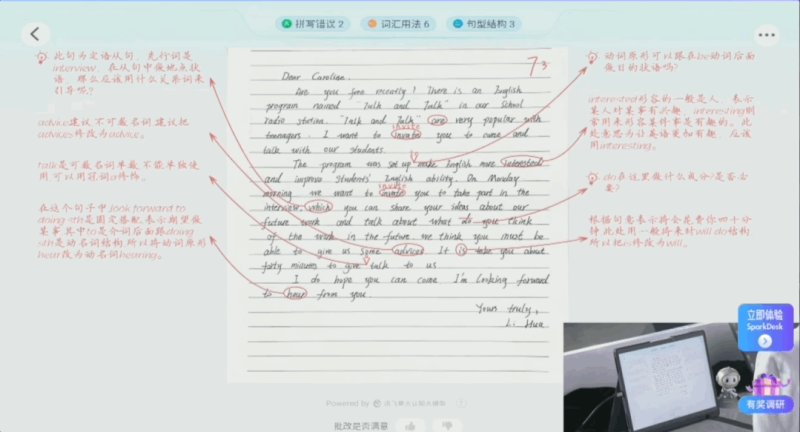 拼写错误 2 词汇用法 6 句型结构 3
此句为定语从句，先行词是
interview，在从句中做地点状
语，那么应该用什么关系词来
引导呢？
advice建议 不可数名词 建议把
advices修改为advice。
talk是可数名词单数 不能单独使
用 可以用冠词a修饰。
在这个句子中,look forward to
doing sth是固定搭配,表示期望做
某事 其中to是介词后面跟doing
sth是动名词结构 所以将动词原形
hear改为动名词hearing。
73
Dear Caroline,
Are you free recently! There is an English
program named "Talk and Talk" in our school
radio station. "Talk and Talk" are very popular with
invite
teenagers. I want to invate you to come and
talk with our students.
The program was set up make English more interested
and improve students' English ability. On Monday
invite
morning we want to invate you to take part in the
interview which you can share your ideas about our
future work and talk about what do you think
of the work in the future. we think you must be
able to give us some advices. It is take you about
forty minutes to give talk to us.
I do hope you can come. I'm looking forward
to hear from you.
Yours truly,
Li Hua
动词原形可以跟在be动词后面
做目的状语吗?
interested形容的一般是人，表示
某人对某事有兴趣，interesting则
常用来形容某件事是有趣的。此
处意思为让英语更加有趣，应该
用interesting。
do在这里做什么成分?是否必
要?
根据句意表示将会花费你四十分
钟 此处用一般将来时will do结构
所以把is修改为will。
Powered by 讯飞星火认知大模型
批改是否满意
立即体验
SparkDesk
有奖调研